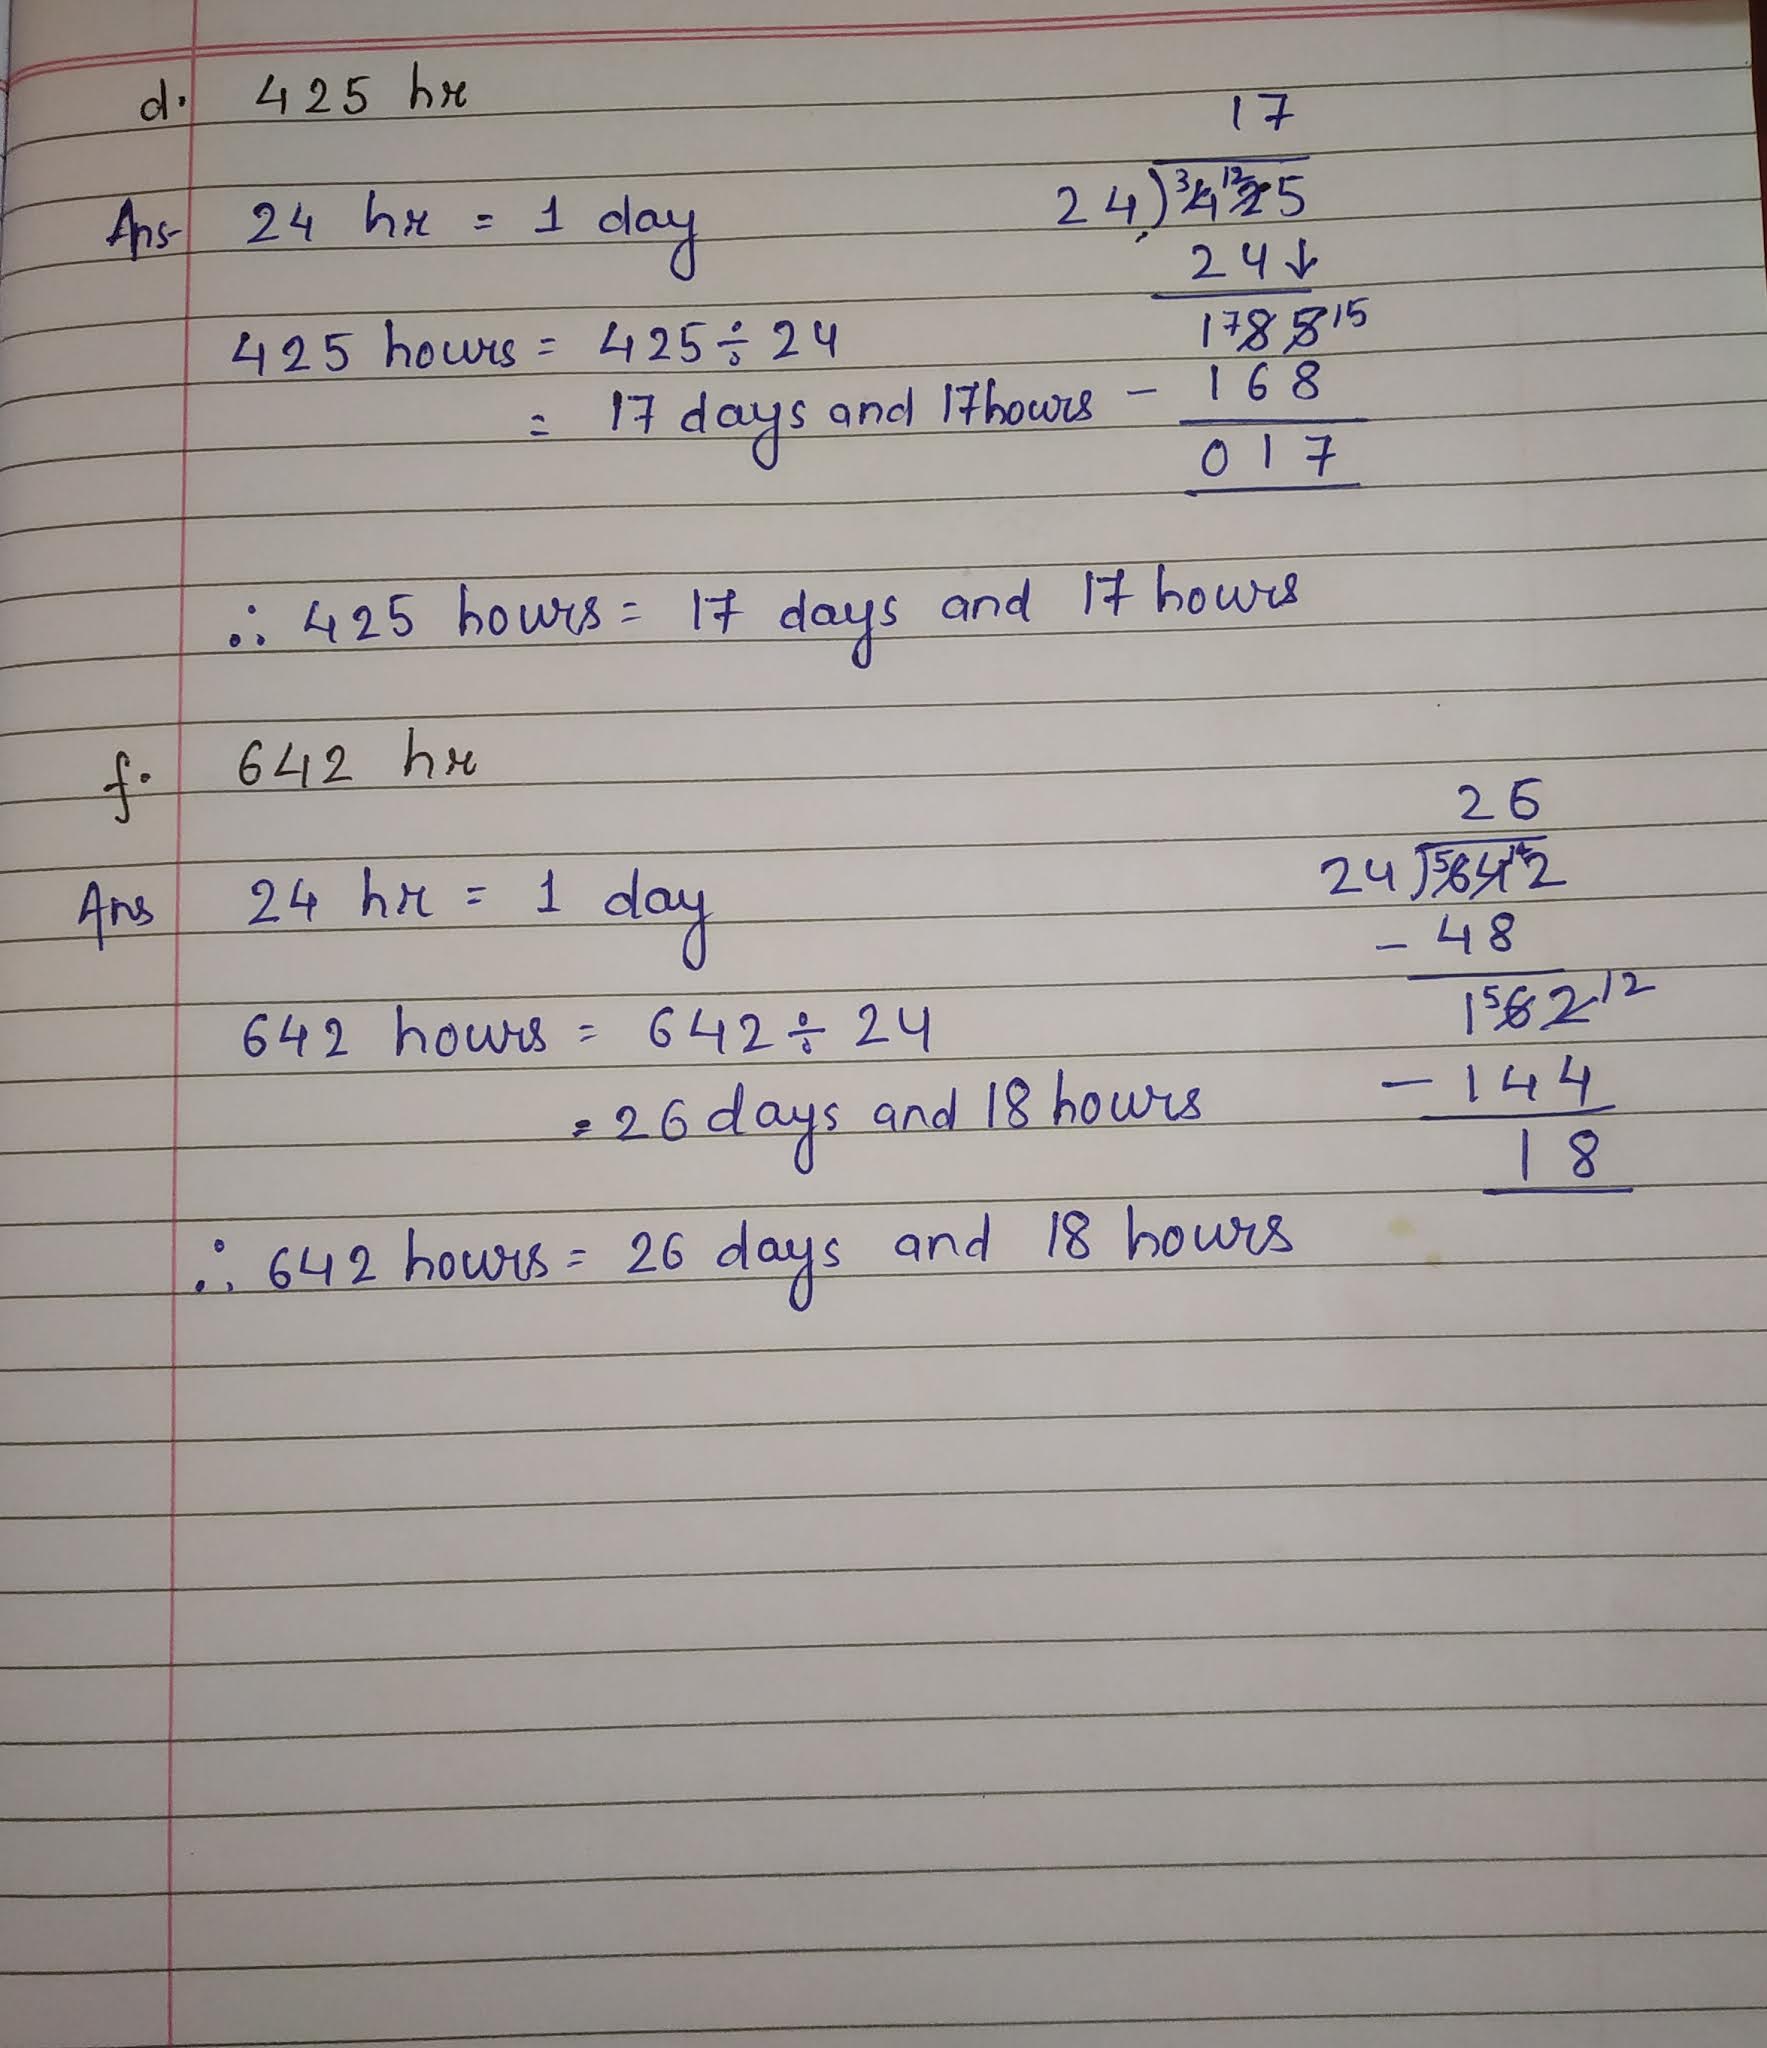 d. 425 hr
Ans- 24 hr = 1 day
425 hours = 425 ÷ 24
= 17 days and 17 hours
17
24)425
24↓
185
- 168
017
∴ 425 hours = 17 days and 17 hours
f. 642 hr
Ans 24 hr = 1 day
642 hours = 642 ÷ 24
= 26 days and 18 hours
26
24)642
- 48
162
- 144
18
∴ 642 hours = 26 days and 18 hours